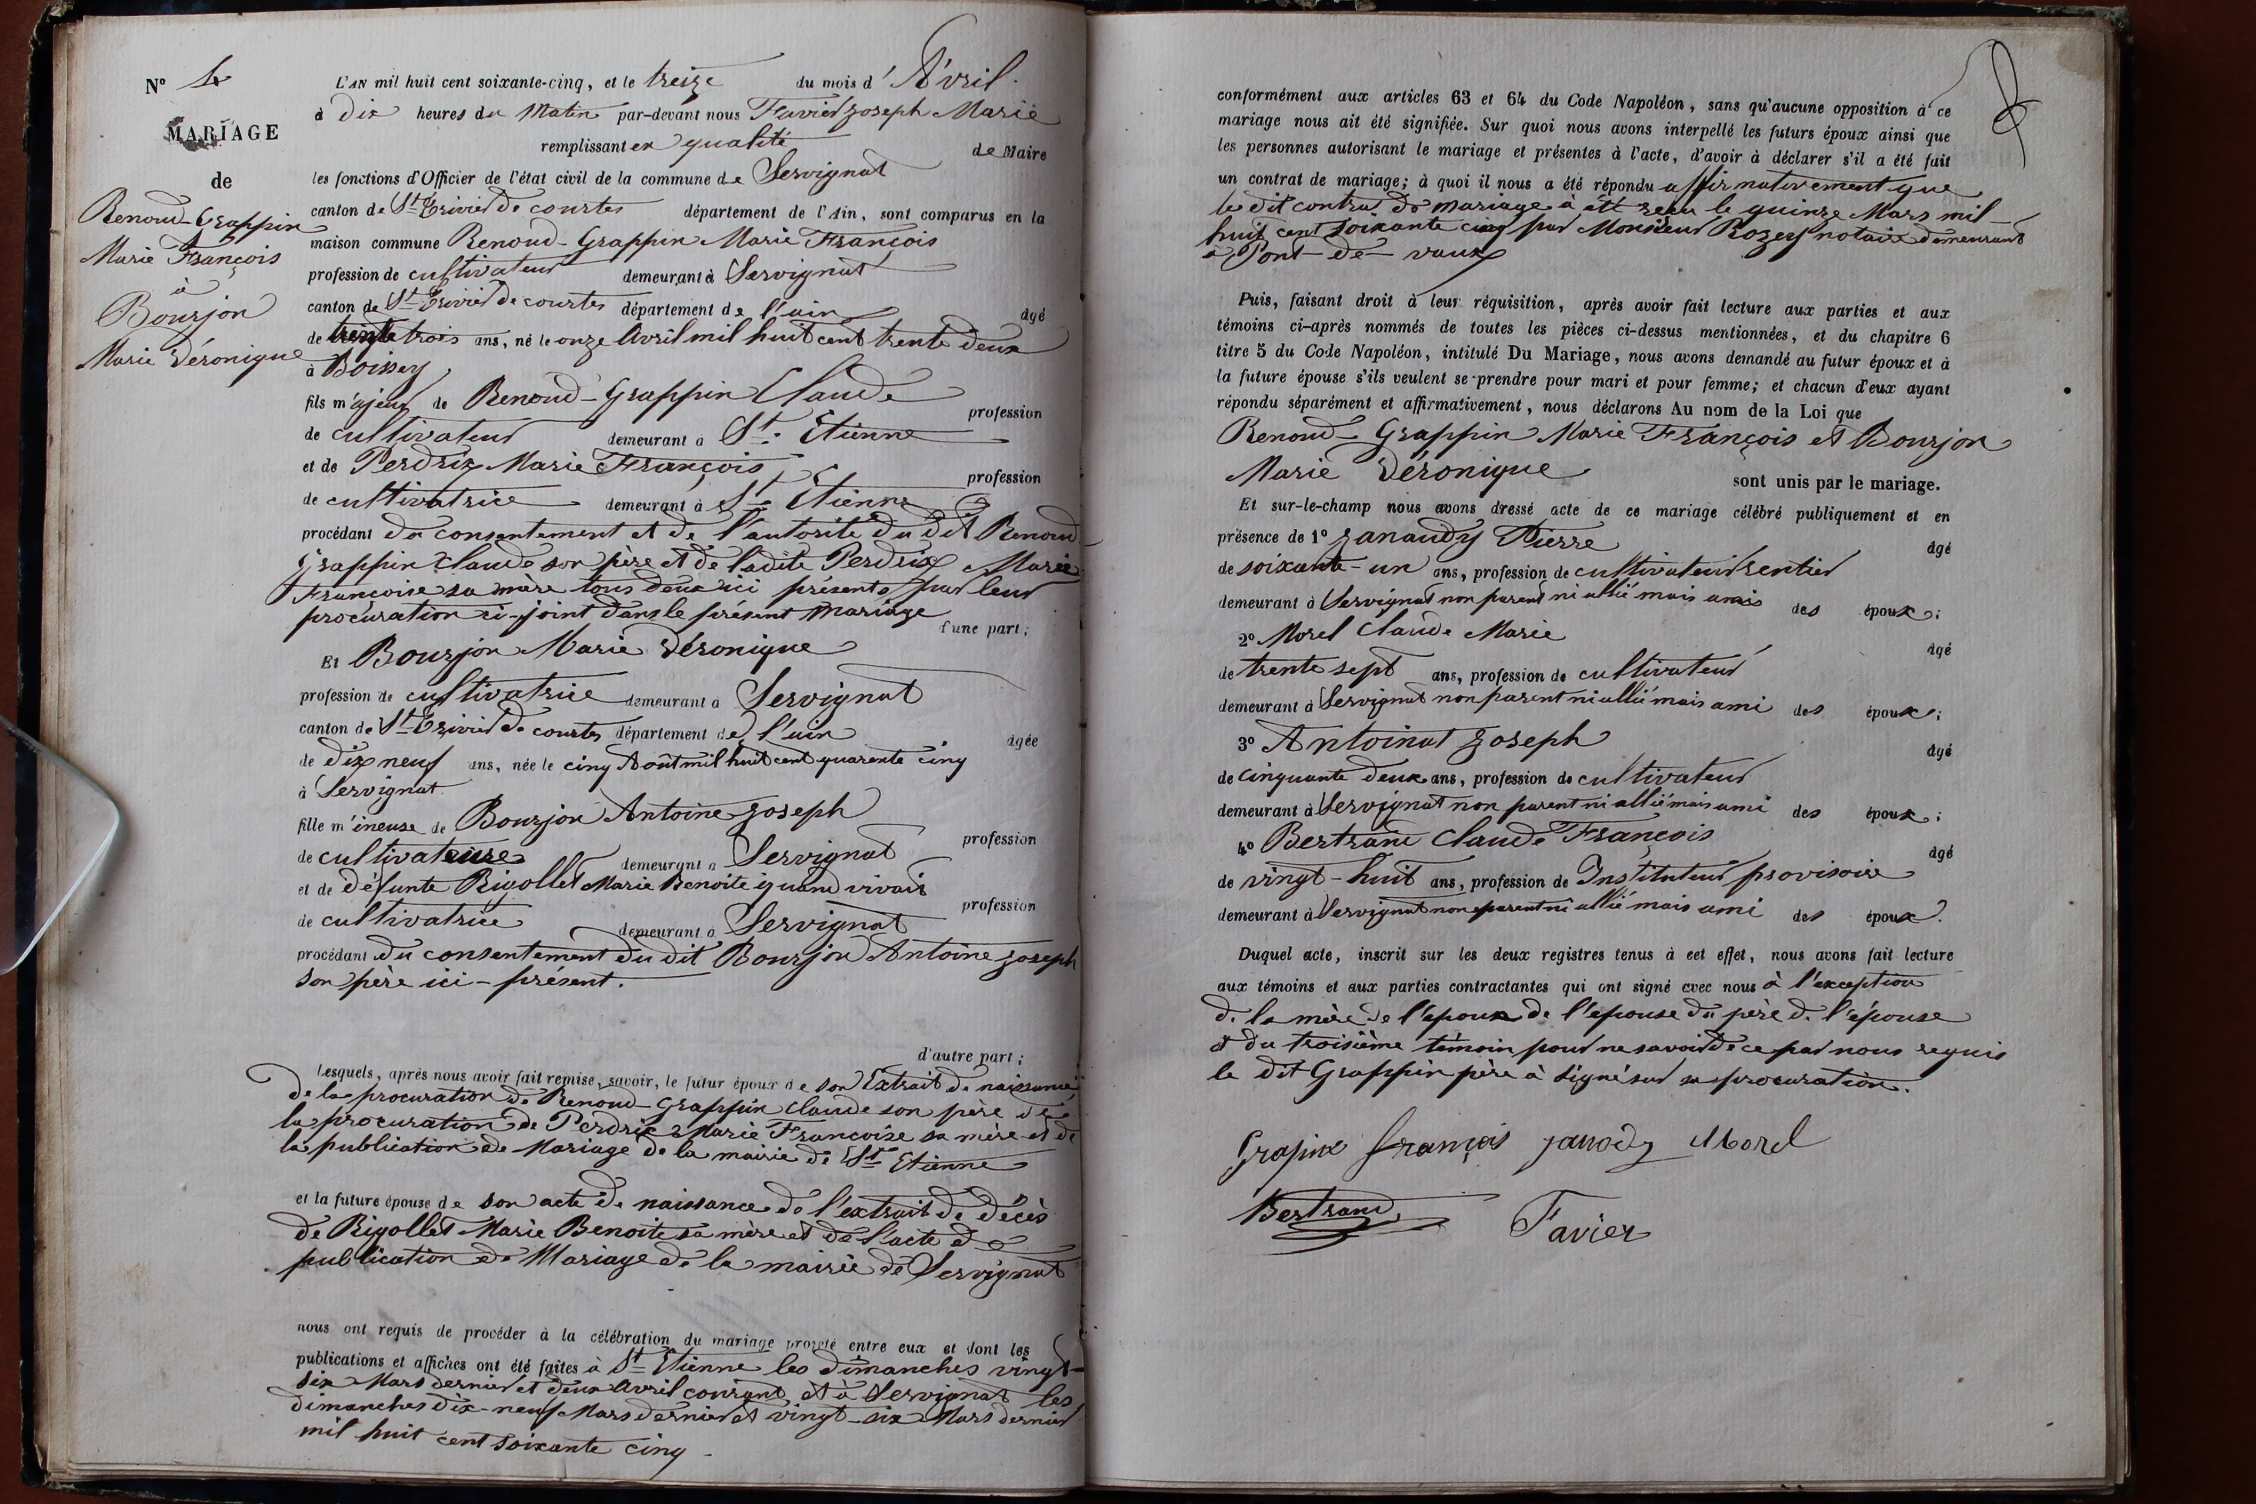 N° 4
MARIAGE
de
Renoud-Grappin
Marie François
à
Bourjon
Marie Véronique
L'AN mil huit cent soixante-cinq, et le treize du mois d'Avril
à Dix heures du Matin par-devant nous Favier Joseph Marie
remplissant en qualité de Maire
les fonctions d'Officier de l'état civil de la commune de Servignat
canton de St Trivier de courtes département de l'Ain, sont comparus en la
maison commune Renoud-Grappin Marie François
profession de cultivateur demeurant à Servignat
canton de St Trivier de courtes département de l'ain âgé
de trente trois ans, né le onze Avril mil huit cent trente deux
à Boissey
fils majeur de Renoud-Grappin Claude profession
de cultivateur demeurant à St. Etienne
et de Perdrix Marie François profession
de cultivatrice demeurant à St Etienne
procédant du consentement et de l'autorité du dit Renoud
Grappin Claude son père et de ladite Perdrix Marie
Françoise sa mère tous deux ici présents par leur
procuration ci-joint dans le présent mariage
d'une part;
Et Bourjon Marie Véronique
profession de cultivatrice demeurant à Servignat
canton de St Trivier de courtes département de l'ain âgée
de Dix neuf ans, née le cinq Août mil huit cent quarente cinq
à Servignat
fille mineuse de Bourjon Antoine Joseph profession
de cultivateur demeurant à Servignat
et de défunte Rigollet Marie Benoite quand vivait profession
de cultivatrice demeurant à Servignat
procédant du consentement du dit Bourjon Antoine Joseph
son père ici-présent.
d'autre part;
Lesquels, après nous avoir fait remise, savoir, le futur époux de son Extrait de naissance
de la procuration de Renoud-Grappin Claude son père de
la procuration de Perdrix Marie Françoise sa mère et de
la publication de Mariage de la mairie de St Etienne
et la future épouse de son acte de naissance de l'extrait de décès
de Rigollet Marie Benoite sa mère et de l'acte de
publication de Mariage de la mairie de Servignat
nous ont requis de procéder à la célébration du mariage projeté entre eux et dont les
publications et affiches ont été faites à St Etienne les dimanches vingt-
six Mars dernier et deux Avril courant et à Servignat les
dimanches dix-neuf Mars dernier et vingt-six Mars dernier
mil huit cent soixante cinq
conformément aux articles 63 et 64 du Code Napoléon, sans qu'aucune opposition à ce
mariage nous ait été signifiée. Sur quoi nous avons interpellé les futurs époux ainsi que
les personnes autorisant le mariage et présentes à l'acte, d'avoir à déclarer s'il a été fait
un contrat de mariage; à quoi il nous a été répondu affirmativement que
le dit contrat de mariage à été reçu le quinze Mars mil-
huit cent soixante cinq par Monsieur Rozey notaire demeurant
à Pont-de-vaux
Puis, faisant droit à leur réquisition, après avoir fait lecture aux parties et aux
témoins ci-après nommés de toutes les pièces ci-dessus mentionnées, et du chapitre 6
titre 5 du Code Napoléon, intitulé Du Mariage, nous avons demandé au futur époux et à
la future épouse s'ils veulent se prendre pour mari et pour femme; et chacun d'eux ayant
répondu séparément et affirmativement, nous déclarons Au nom de la Loi que
Renoud-Grappin Marie François et Bourjon
Marie Véronique sont unis par le mariage.
Et sur-le-champ nous avons dressé acte de ce mariage célébré publiquement et en
présence de 1° Janaudy Pierre âgé
de soixante-un ans, profession de cultivateur rentier
demeurant à Servignat non parent ni allié mais amis des époux;
2° Morel Claude Marie âgé
de trente sept ans, profession de cultivateur
demeurant à Servignat non parent ni allié mais ami des époux;
3° Antoinat Joseph âgé
de cinquante deux ans, profession de cultivateur
demeurant à Servignat non parent ni allié mais ami des époux;
4° Bertrand Claude François âgé
de vingt-huit ans, profession de Instituteur provisoire
demeurant à Servignat non parent ni allié mais ami des époux.
Duquel acte, inscrit sur les deux registres tenus à cet effet, nous avons fait lecture
aux témoins et aux parties contractantes qui ont signé avec nous à l'exception
de la mère de l'époux de l'épouse du père de l'épouse
et du troisième témoin pour ne savoir de ce par nous requis
le dit Grappin père à signé sur sa procuration.
Grapine françois janody Morel
Bertrand Favier